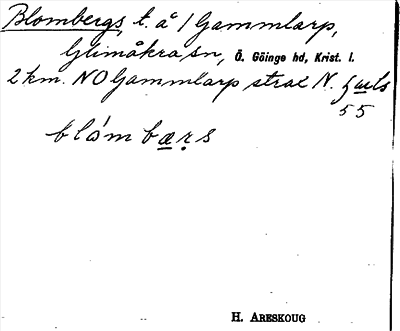 Blombergs, t. å 1 Gammlarp,
Glimåkra sn, Ö. Göinge hd, Krist. l.
2 km. NO Gammlarp strax N.
55
blóm bæṛs
H. ARESKOUG